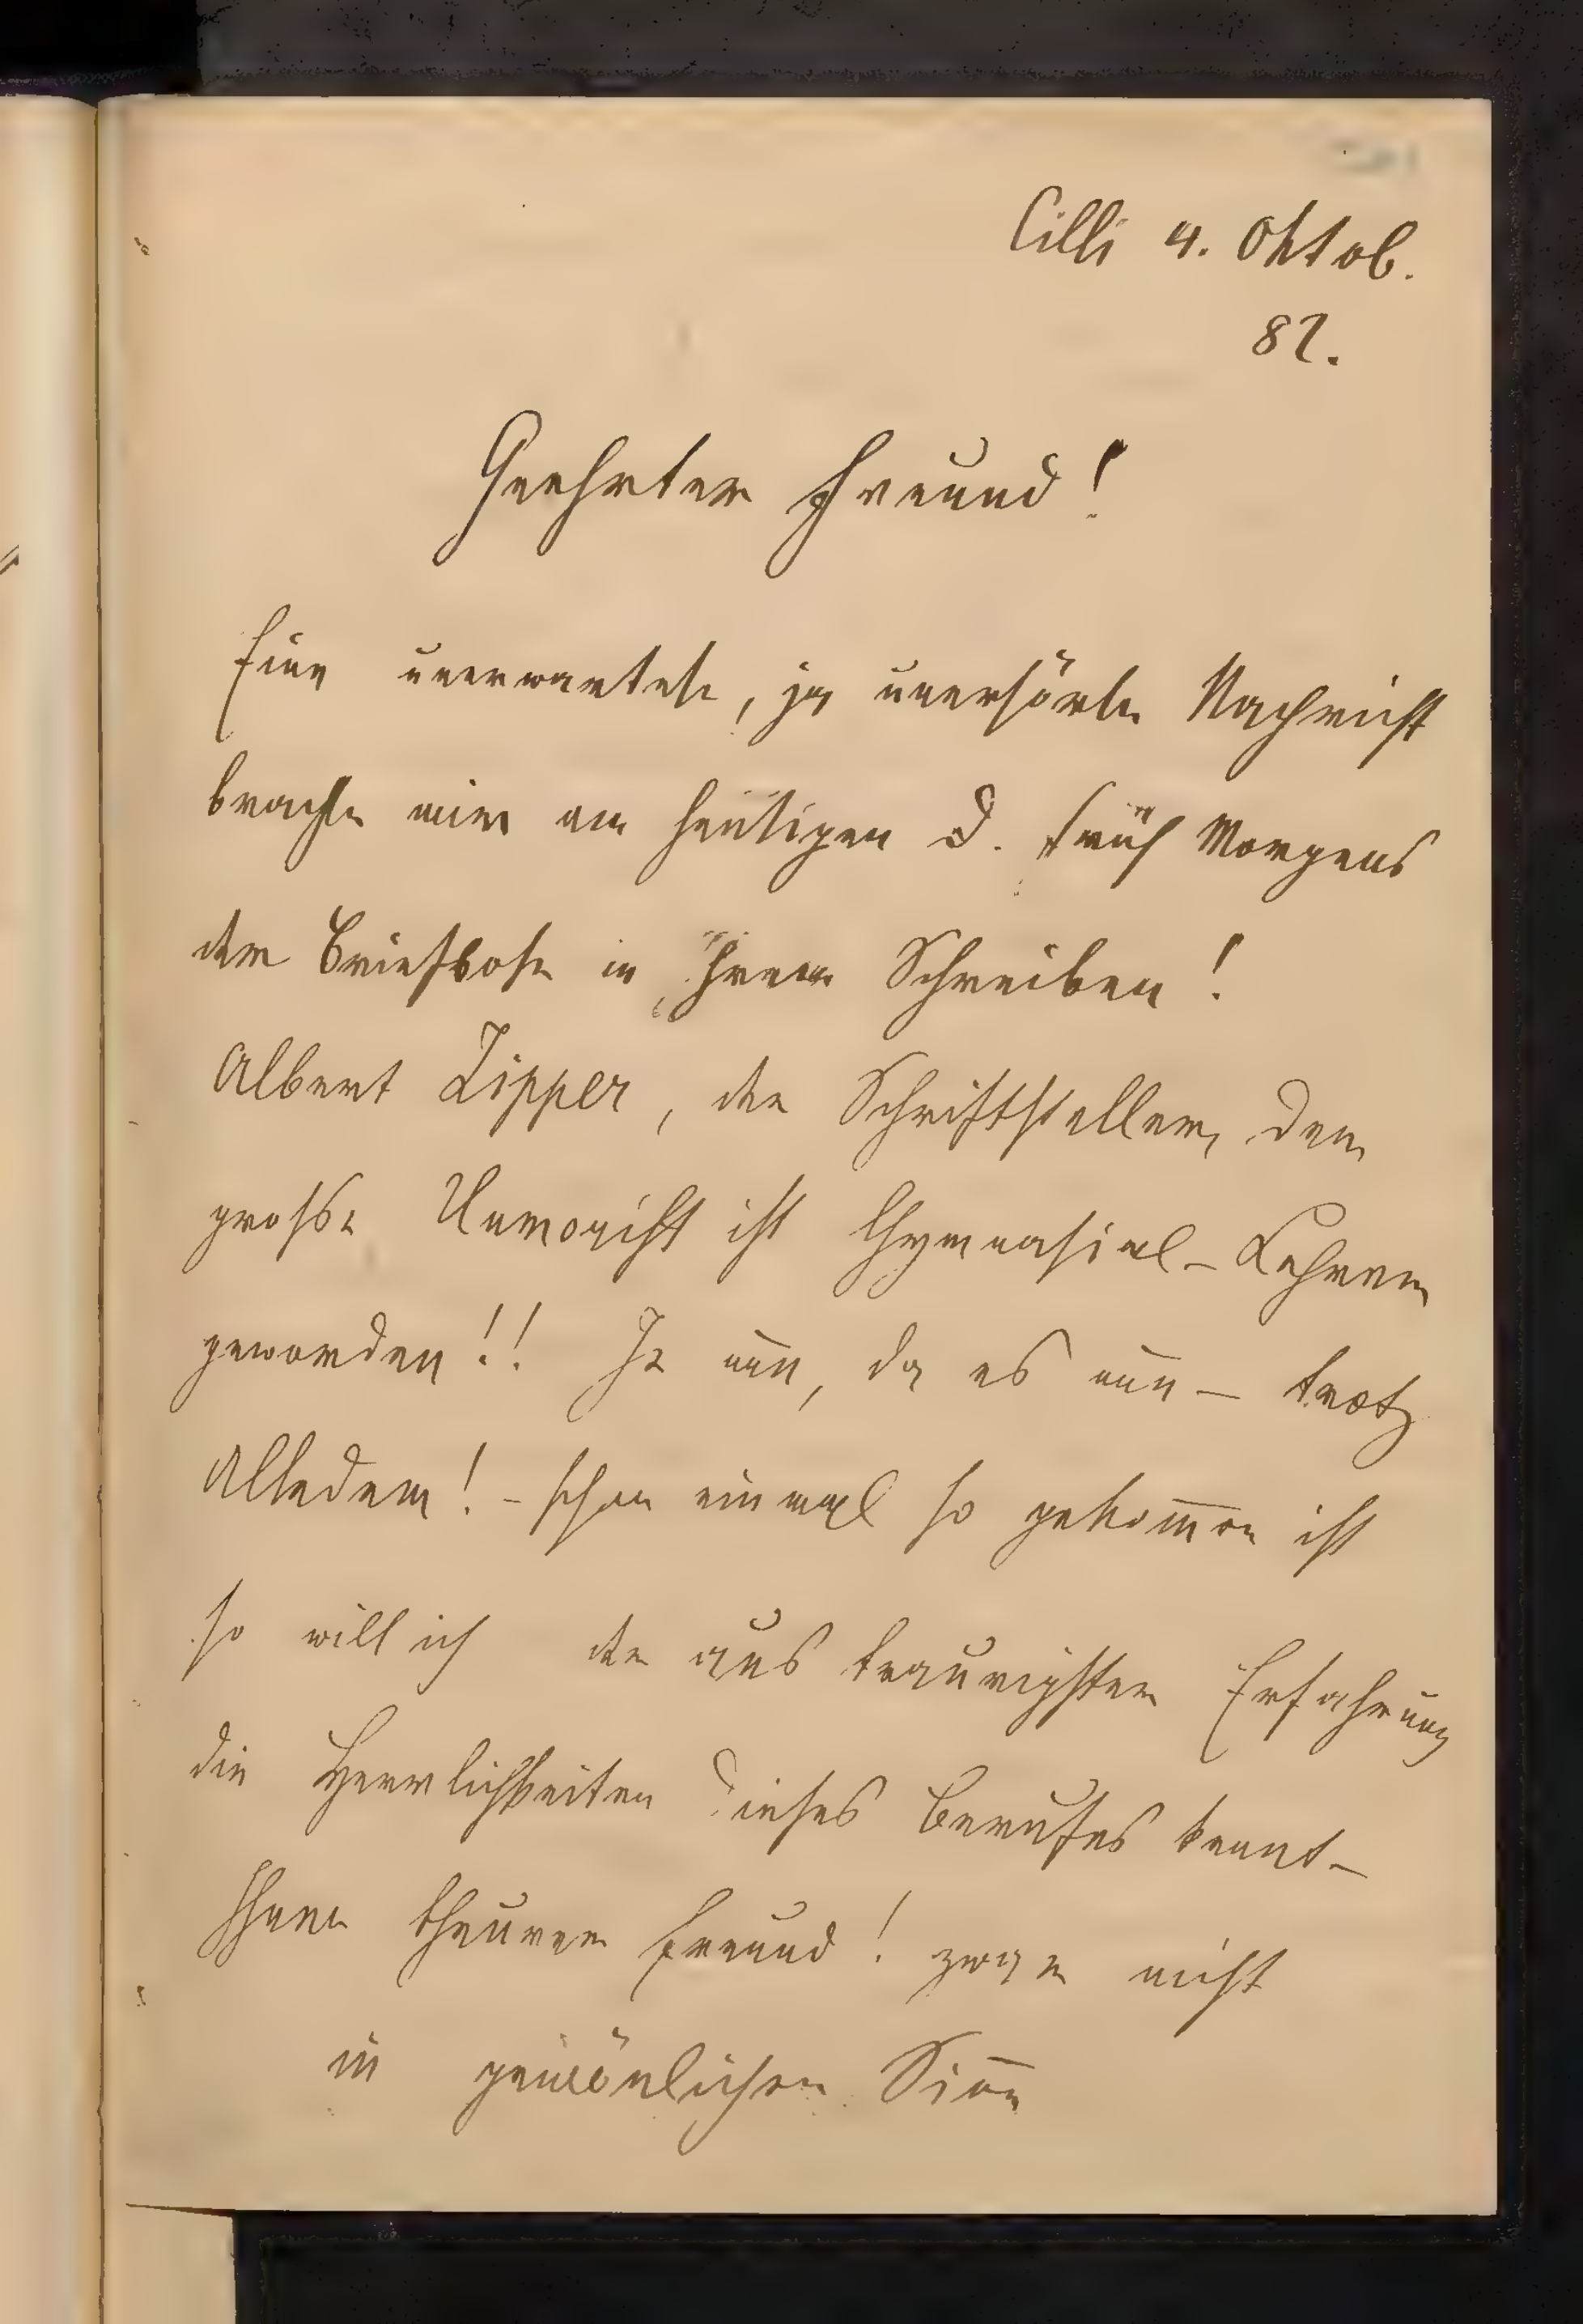 Cilli 4. Oktob.
82.
Geehrter Freund!
Eine unerwartete, ja unerhörte Nachricht
brachte mir am heutigen d. früh Morgens
der Briefbote in Ihrem Schreiben!
Albert Zipper, der Schriftsteller, der
große Humorist ist Gymnasial-Lehrer
geworden!! Je nun, da es nun – trotz
Alledem! – schon einmal so gekom̅en ist
so will ich der aus traurigster Erfahrung
die Herrlichkeiten dieses Berufes kennt –
Ihnen theurer Freund! zwar nicht
in gewönlichen Sin̅e